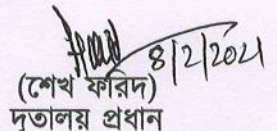 8/2/2021
(শেখ ফরিদ)
দূতালয় প্রধান